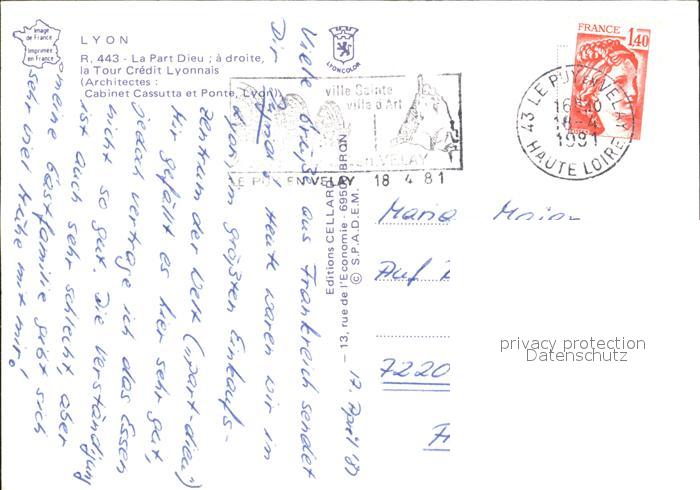 Image
de France
Imprimée
en France
LYON
R. 443 - La Part Dieu ; à droite,
la Tour Crédit Lyonnais
(Architectes :
Cabinet Cassutta et Ponte, Lyon)
LYONCOLOR
ville Sainte
ville d'Art
LE PUY EN VELAY 18 4 81
FRANCE
1,40
43 LE PUY EN VELAY
18-4
1981
HAUTE LOIRE
Editions CELLARD
- 13, rue de l'Economie - 69500 BRON
© S.P.A.D.E.M.
17. April 81
Viele Grüße aus Frankreich sendet
Dir Heute waren wir in
Lyon, im größten Einkaufs-
zentrum der Welt ("part-dieu")
Mir gefällt es hier sehr gut,
jedoch vertrage ich das Essen
nicht so gut. Die Verständigung
ist auch sehr schlecht, aber
meine Gastfamilie gibt sich
sehr viel Mühe mit mir!
Maria
Auf
7220
privacy protection
Datenschutz